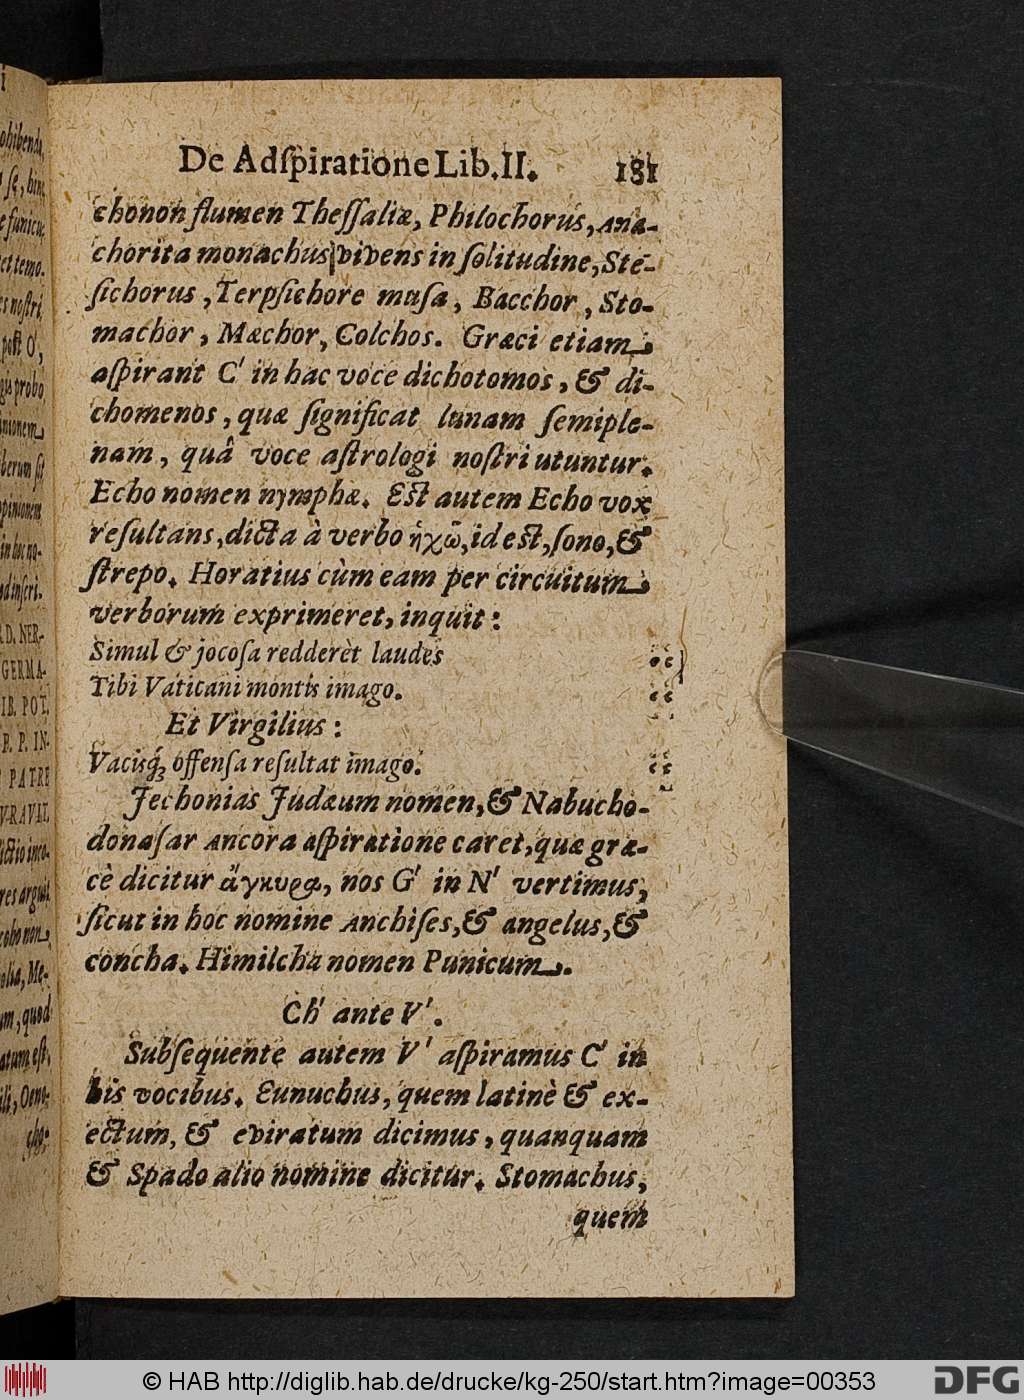 De Adſpiratione Lib. II. 181
chonon flumen Theſſaliæ, Philochorus, Ana-
chorita monachus vivens in ſolitudine, Ste-
ſichorus, Terpſichore muſa, Bacchor, Sto-
machor, Mæchor, Colchos. Græci etiam
aſpirant C' in hac voce dichotomos, & di-
chomenos, quæ ſignificat lunam ſemiple-
nam, quâ voce aſtrologi noſtri utuntur.
Echo nomen nymphæ. Eſt autem Echo vox
reſultans, dicta à verbo ἠχῶ, id eſt, ſono, &
ſtrepo. Horatius cùm eam per circuitum
verborum exprimeret, inquit:
Simul & jocoſa redderèt laudes
Tibi Vaticani montis imago.
Et Virgilius:
Vacisq́; offenſa reſultat imago.
Jechonias Judæum nomen, & Nabucho-
donaſar Ancora aſpiratione caret, quæ græ-
cè dicitur ἄγκυρα, nos G' in N' vertimus,
ſicut in hoc nomine Anchiſes, & angelus, &
concha. Himilcha nomen Punicum.
Ch' ante V'.
Subſequente autem V' aſpiramus C' in
his vocibus. Eunuchus, quem latinè & ex-
ectum, & eviratum dicimus, quanquam
& Spado alio nomine dicitur. Stomachus,
quem
© HAB http://diglib.hab.de/drucke/kg-250/start.htm?image=00353
DFG